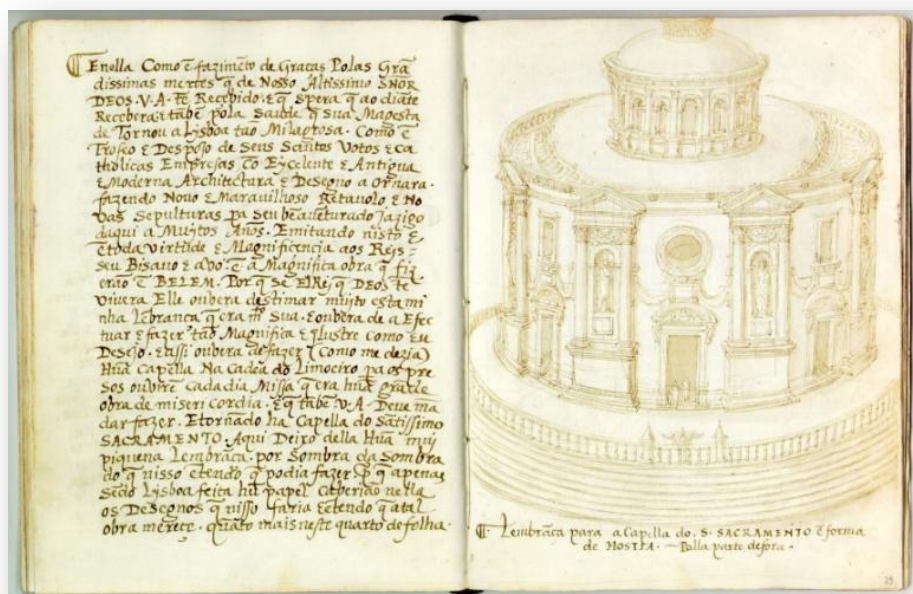 Enella Como ẽ fazimẽto de Graças Polas Grã
dissimas merces q̃ de Nosso Altissimo SNOR
DEOS. V. A. tẽ Recebido. E q̃ Spera q̃ ao diãte
Recebera: E tãbẽ pola Saude q̃ Sua Magesta
de Tornou a Lysboa tão Milagrosa. Como ẽ
Trofeo E Despojo de Seus Santos Votos E Ca
tholicas Empresas Cõ Excelente E Antigua
E Moderna Architectura E Desegno a Ornara.
fazendo Novo E Maravilhoso Retavolo, E No
vas Sepulturas pa Seu bẽaventurado Jazigo
daqui a Muytos Años. Emitando nisto E
ẽ toda virtude E Magnificencia aos Reis
Seu Bisavo E avo: ẽ a Magnifica obra q̃ fiz
erão ẽ BELEM. Por q̃ Se ElRej q̃ DEOS tẽ
vivera Elle ouvera destimar muito esta mi
nha Lẽbrança q̃ era mᵗᵒ Sua. E ouvera de a Efec
tuar E fazer tão Magnifica E Illustre como Eu
Desejo. E assi ouvera de fazer (Como me dezia)
Hũa Capella Na Cadea do Limoeiro pa os pre
sos ouvirẽ cada dia Missa q̃ era hũa grãde
obra de misericordia. E q̃ tãbẽ V. A. Deve mã
dar fazer. E tornãdo ha Capella do Sãtissimo
SACRAMENTO. Aqui Deixo della Hũa mui
piquena Lembrãça. por Sombra da Sombra
do q̃ nisso ẽtendo q̃ podia fazer. P q̃ apenas
Sẽdo Lysboa feita hũ papel Caberião nella
os Desegnos q̃ nisso faria Eẽtendo q̃ a tal
obra mereçe. quãto mais neste quarto de folha.
Lembrãça para a Capella do. S. SACRAMENTO ẽ forma
de HOSTIA. — Polla parte de fora.